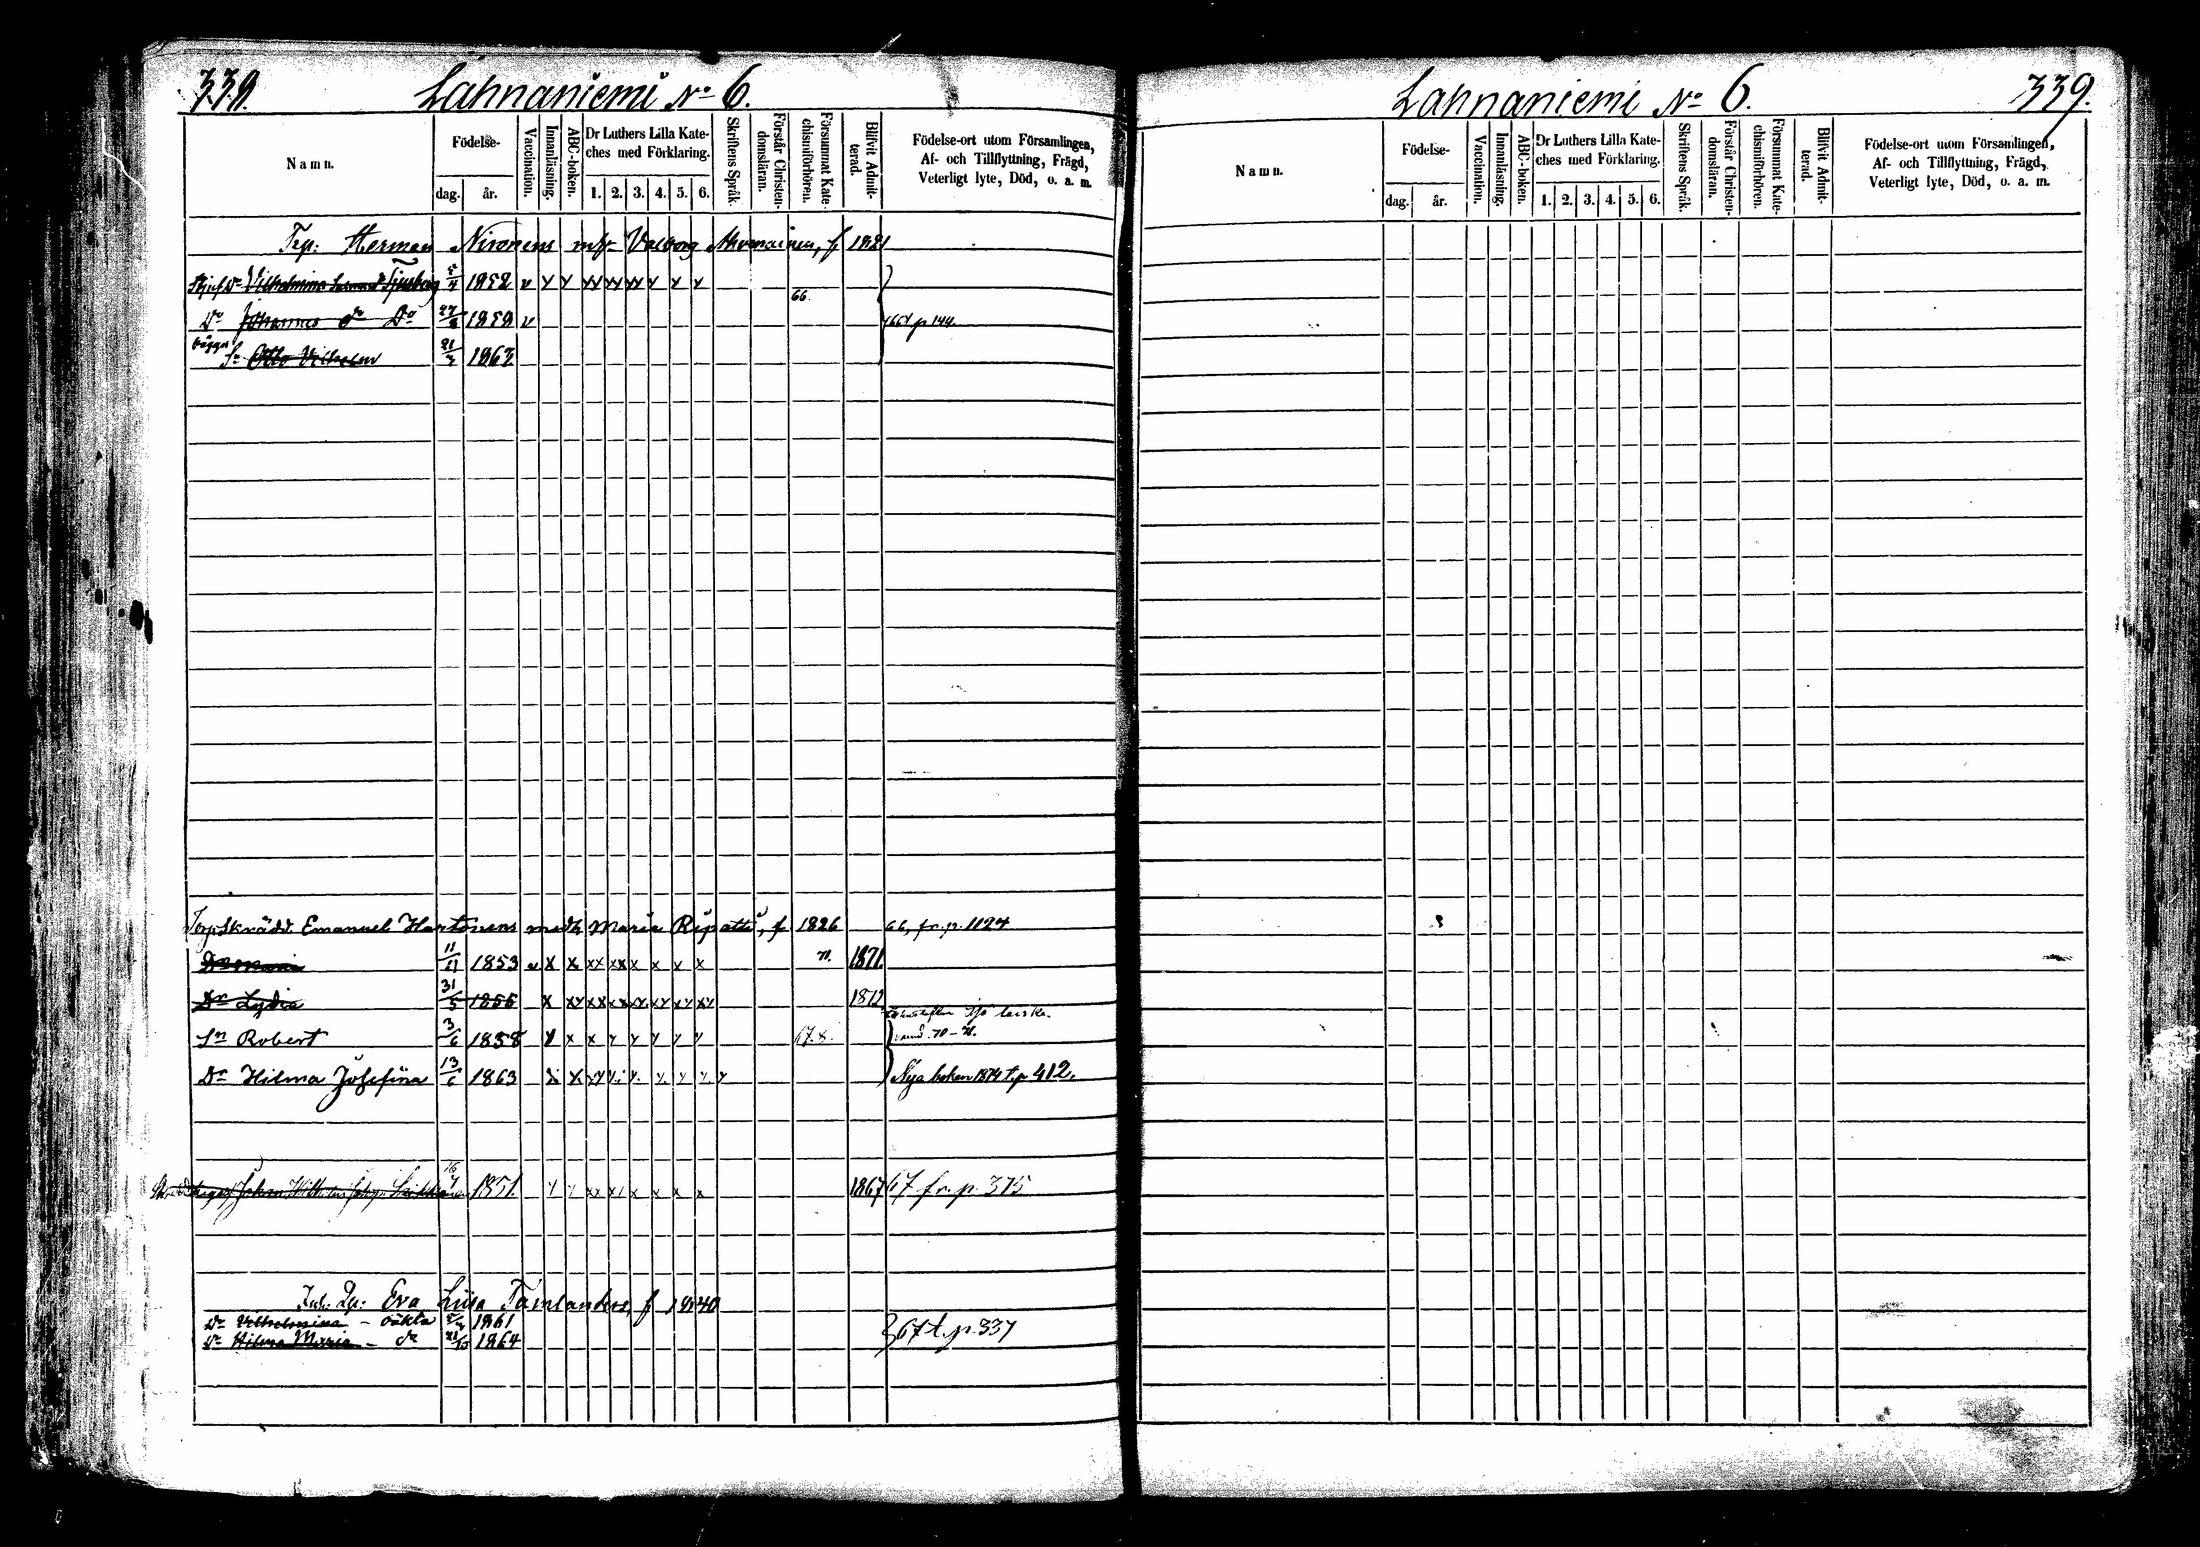 339.
Lahnaniemi No 6.
Namn.
Födelse-
dag. år.
Vaccination.
Innanläsning.
ABC-boken.
Dr Luthers Lilla Kateches med Förklaring.
1. 2. 3. 4. 5. 6.
Skriftens Språk.
Förstår Christendomsläran.
Försummat Katechismiförhören.
Blifvit Admitterad.
Födelse-ort utom Församlingen,
Af- och Tillflyttning, Frägd,
Veterligt lyte, Död, o. a. m.
Herman Nironens Valborg f 1821
Vilhelmina 5/4 1852 v y y xx xx xx y y y
66.
Dr Johannes do Do 27/8 1858 v p 144.
Sn Otto Vilhelm 21/3 1863
Torp. Skrädd. Emanuel Hartonens medh Maria Ripatti, f 1826 66, fr. p. 1124
Dr Maria 11/11 1853 v x x xx xx x x x x 71. 1871.
Dr Lydia 31/5 1855 x xy xx xx xy xy xy xy 1872
Sn Robert 3/6 1858 y x x y y y y y 67.8. 70-71.
Dr Hilma Josefina 13/6 1863 x x xy y y y y y y Nya boken 1874 t. p 412.
Johan 16/4 1851. y y xx xy x x x x 1867 67 fr. p. 375
Eva Liisa f 1840
Dr Vilhelmina - oäkta 1861
Dr Hilma Maria - do 1864
67 t. p. 337
Lahnaniemi No 6.
339.
Namn.
Födelse-
dag. år.
Vaccination.
Innanläsning.
ABC-boken.
Dr Luthers Lilla Kateches med Förklaring.
1. 2. 3. 4. 5. 6.
Skriftens Språk.
Förstår Christendomsläran.
Försummat Katechismiförhören.
Blifvit Admitterad.
Födelse-ort utom Församlingen,
Af- och Tillflyttning, Frägd,
Veterligt lyte, Död, o. a. m.